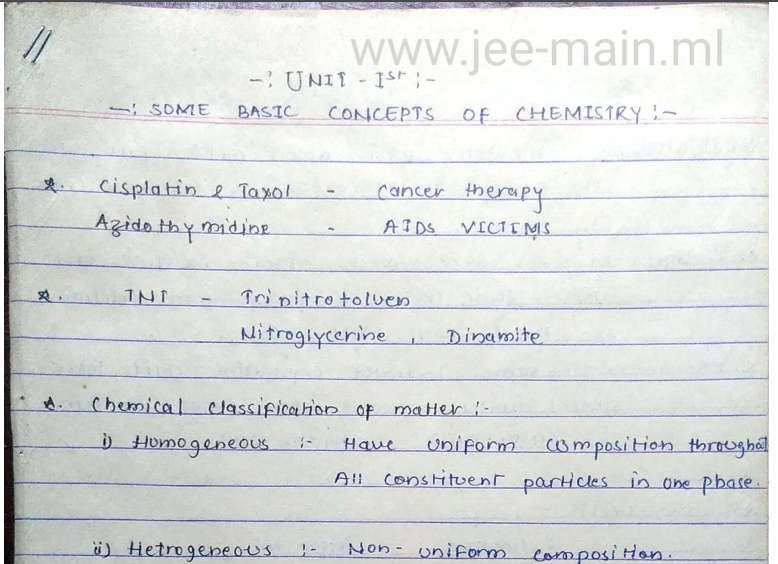 www.jee-main.ml
-: UNIT - Ist :-
-: SOME BASIC CONCEPTS OF CHEMISTRY :-
*. Cisplatin & Taxol - Cancer therapy
Azidothymidine - AIDS VICTIMS
*. TNT - Trinitrotoluen
Nitroglycerine, Dinamite
*. Chemical classification of matter :-
i) Homogeneous :- Have uniform composition throughout
All constituent particles in one phase.
ii) Hetrogeneous :- Non-uniform composition.